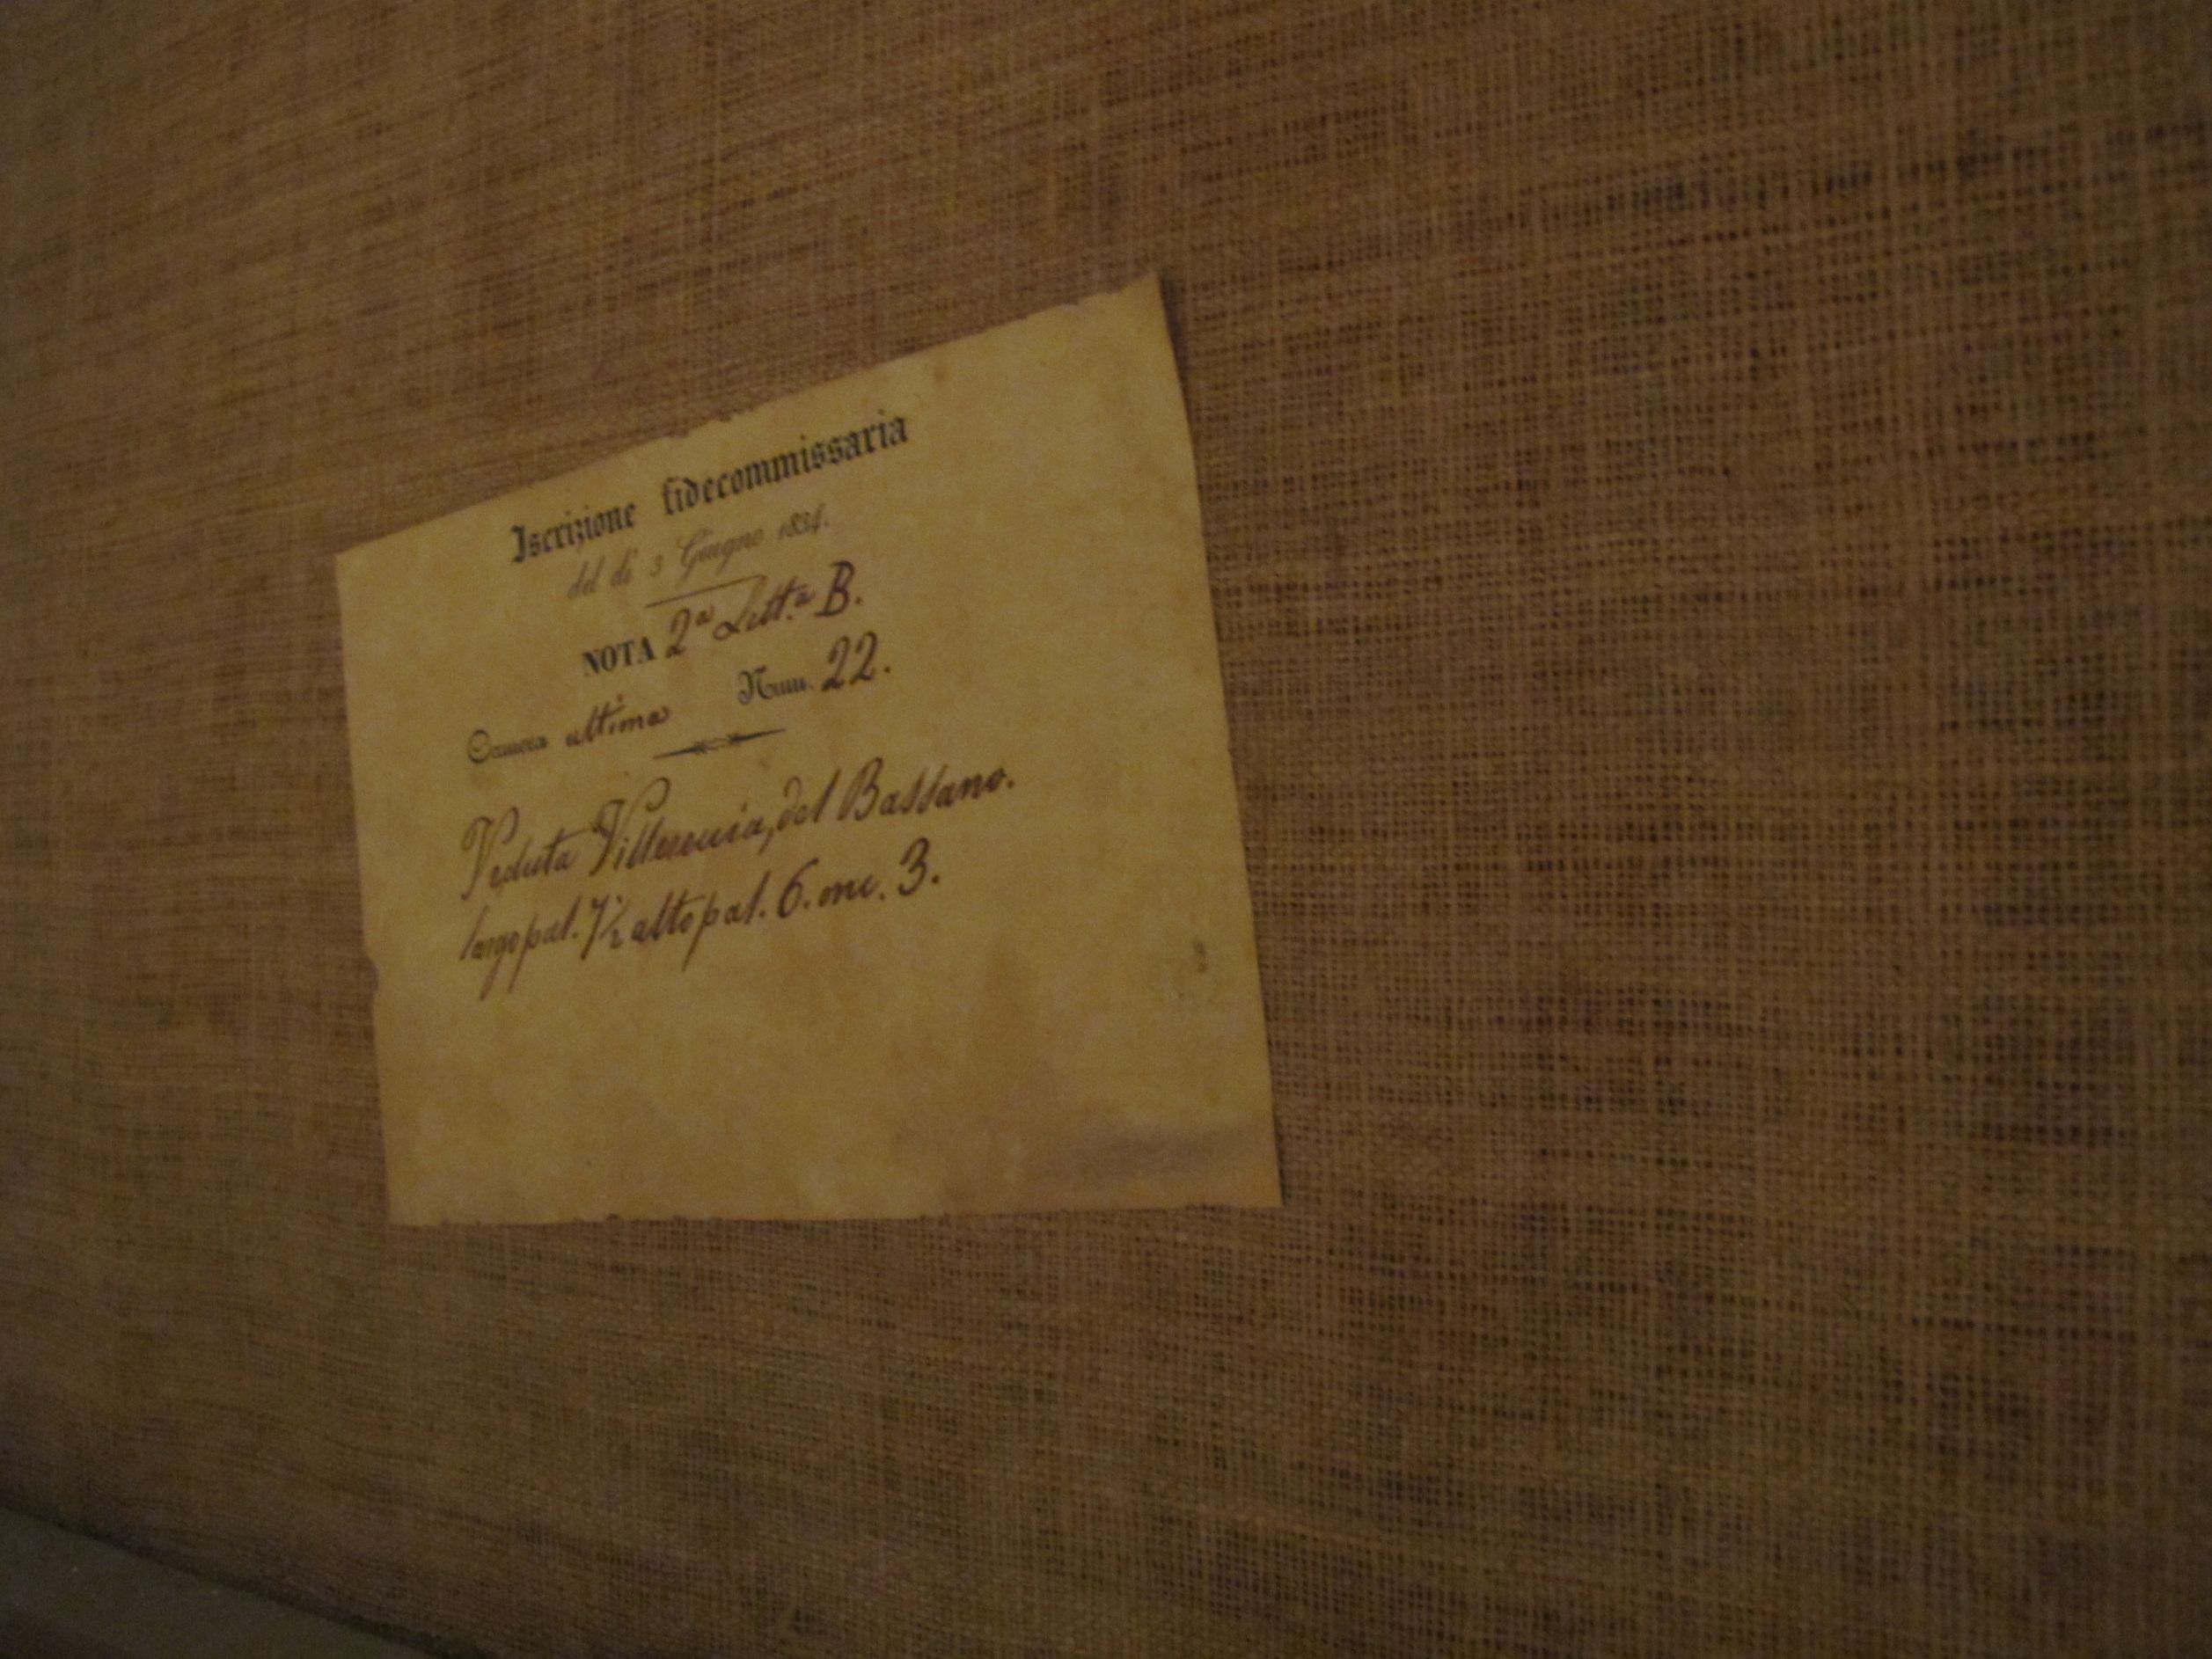 Iscrizione fidecommissaria
del dì 3 Giugno 1834.
NOTA 2ª Lett.ª B.
Camera ultima Num. 22.
Veduta Villereccia, del Bassano.
largo pal. 7½ alto pal. 6. onc. 3.